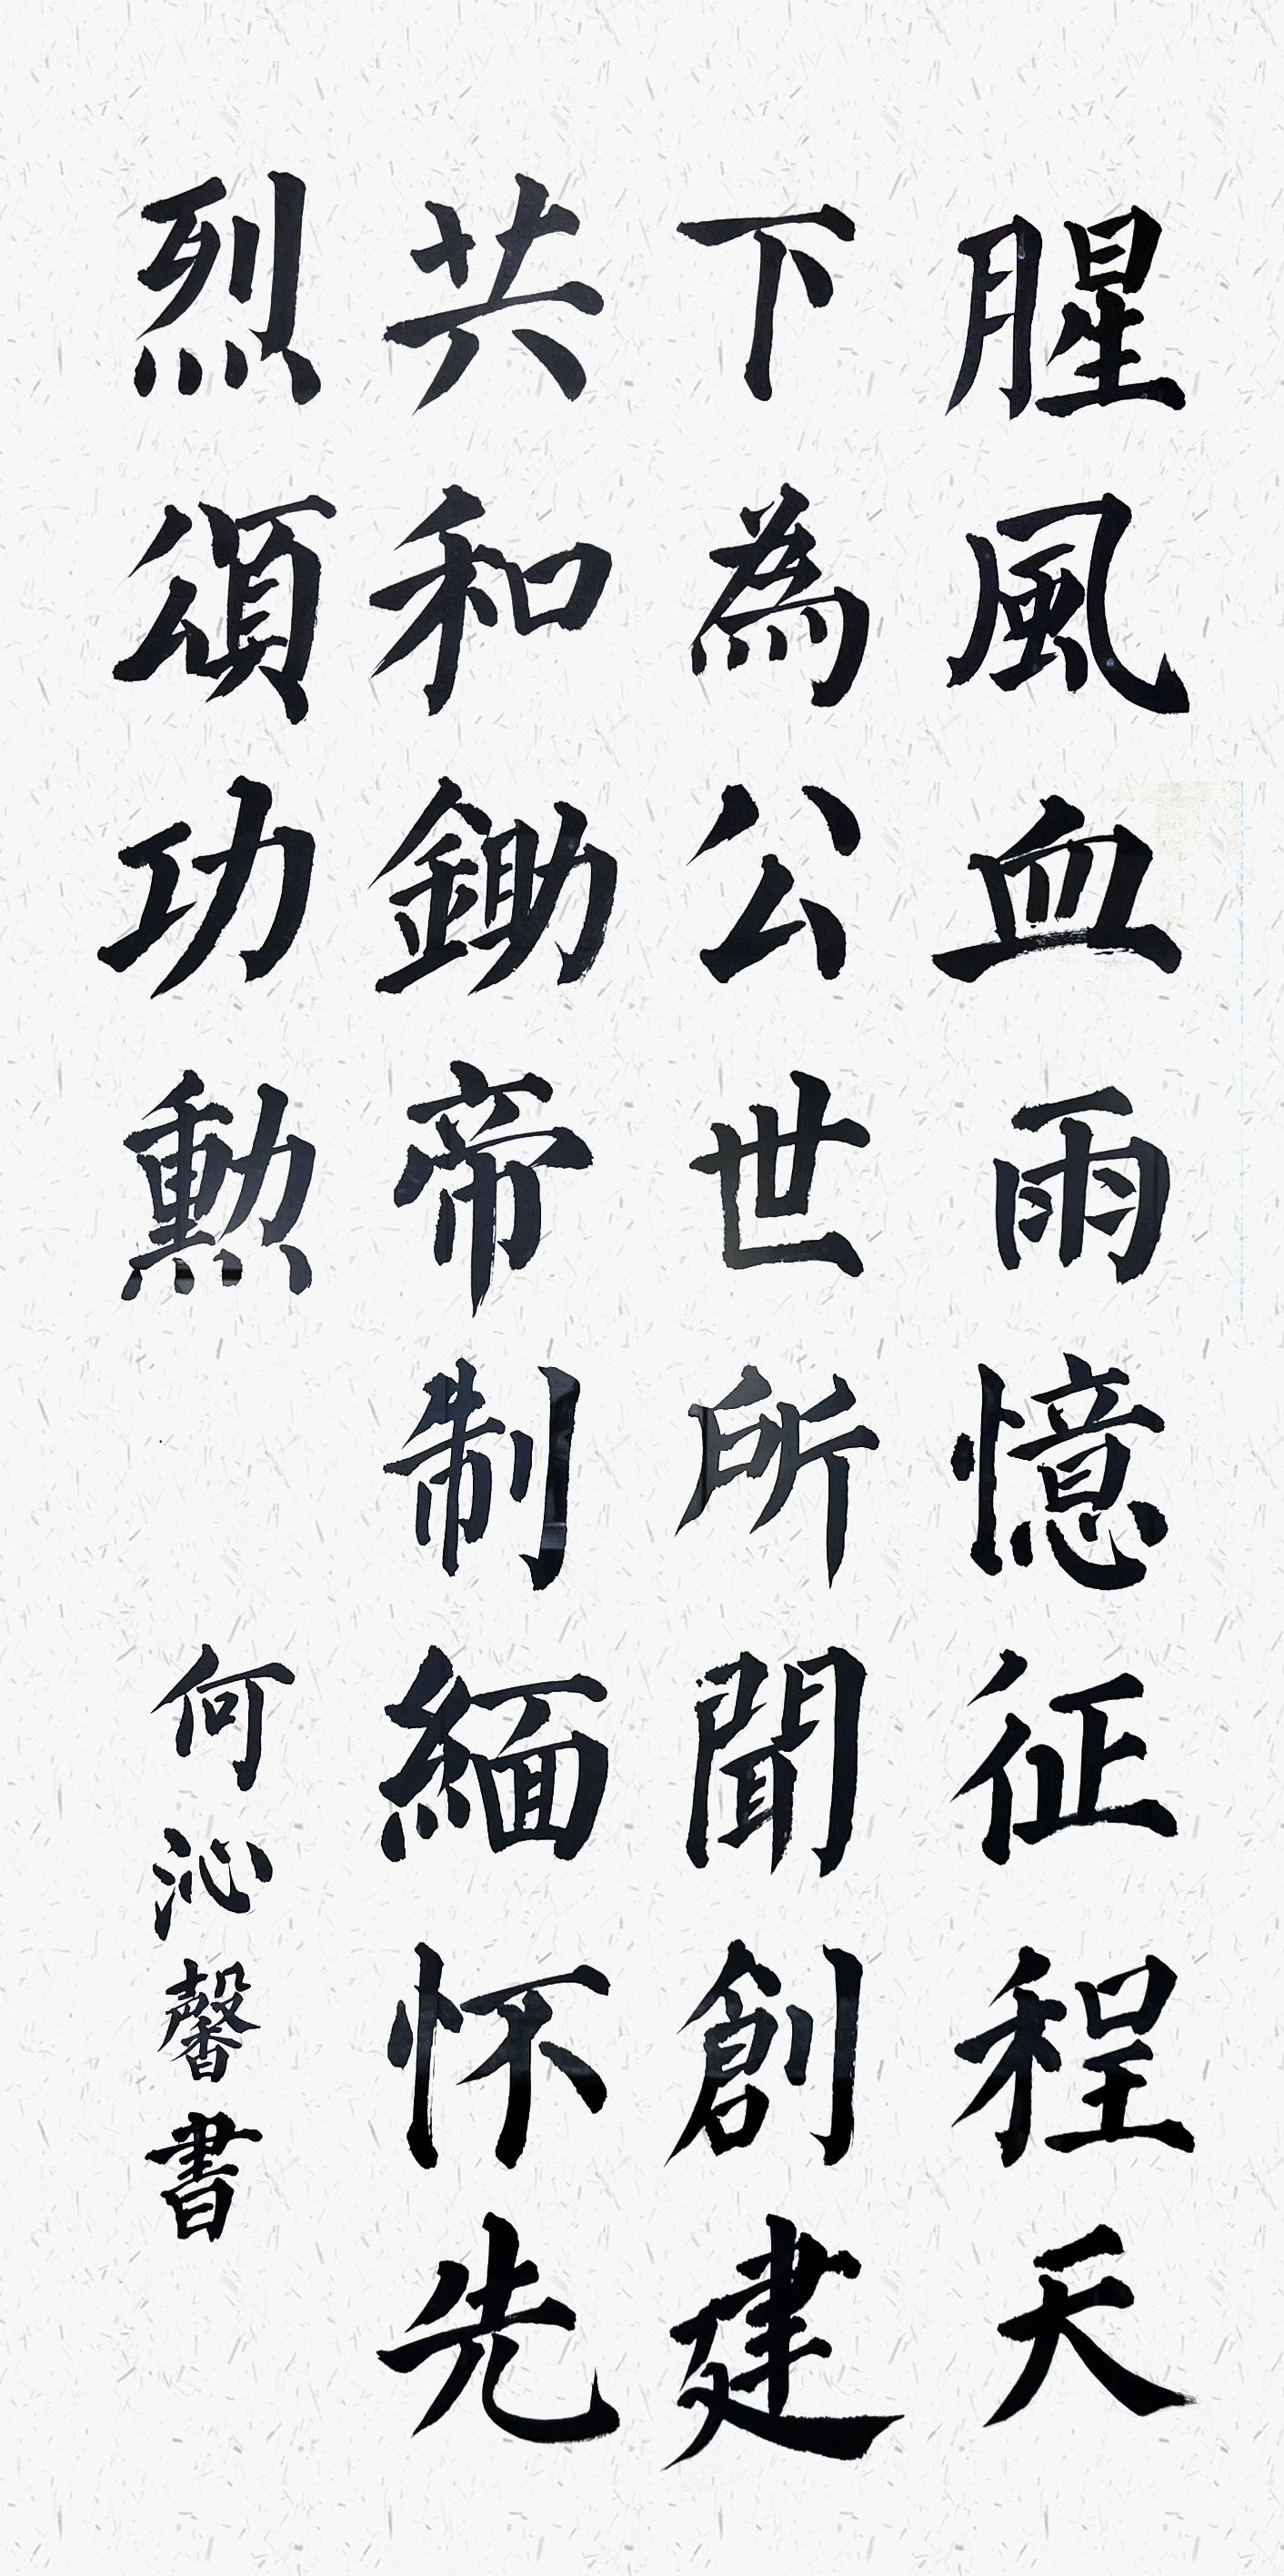 腥風血雨憶征程天
下為公世所聞創建
共和鋤帝制緬怀先
烈頌功勲
何沁馨書